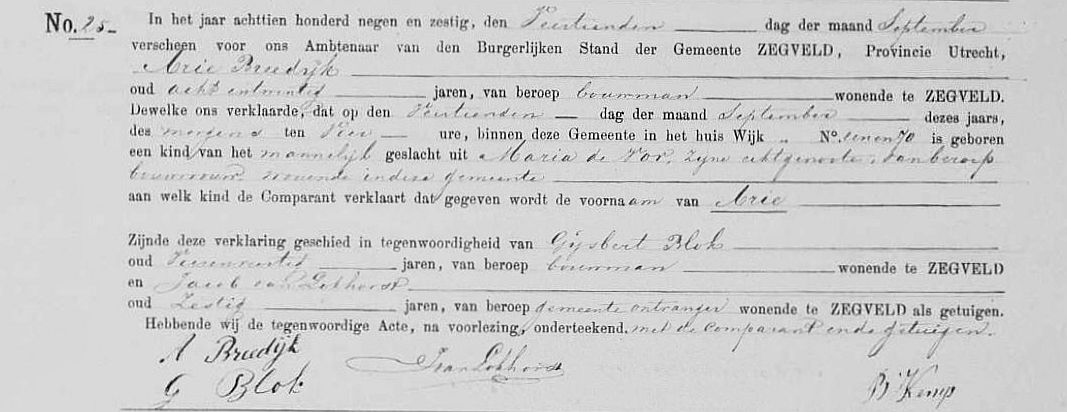 No. 25.
In het jaar achttien honderd negen en zestig, den Veertienden dag der maand September
verscheen voor ons Ambtenaar van den Burgerlijken Stand der Gemeente ZEGVELD, Provincie Utrecht,
Arie Breedijk
oud acht entwintig jaren, van beroep bouwman wonende te ZEGVELD.
Dewelke ons verklaarde, dat op den Veertienden dag der maand September dezes jaars,
des morgens ten Vier ure, binnen deze Gemeente in het huis Wijk „ No. een en 70 is geboren
een kind van het mannelijk geslacht uit Maria de Vor, zijne echtgenoote, van beroep
bouwvrouw, wonende indeze gemeente
aan welk kind de Comparant verklaart dat gegeven wordt de voornaam van Arie
Zijnde deze verklaring geschied in tegenwoordigheid van Gijsbert Blok
oud jaren, van beroep bouwman wonende te ZEGVELD
en Jacob van Lokhorst
oud Zestig jaren, van beroep gemeente ontvanger wonende te ZEGVELD als getuigen.
Hebbende wij de tegenwoordige Acte, na voorlezing, onderteekend, met de Comparant ende getuigen.
A Breedijk
JvanLokhorst
G Blok
B Kemp